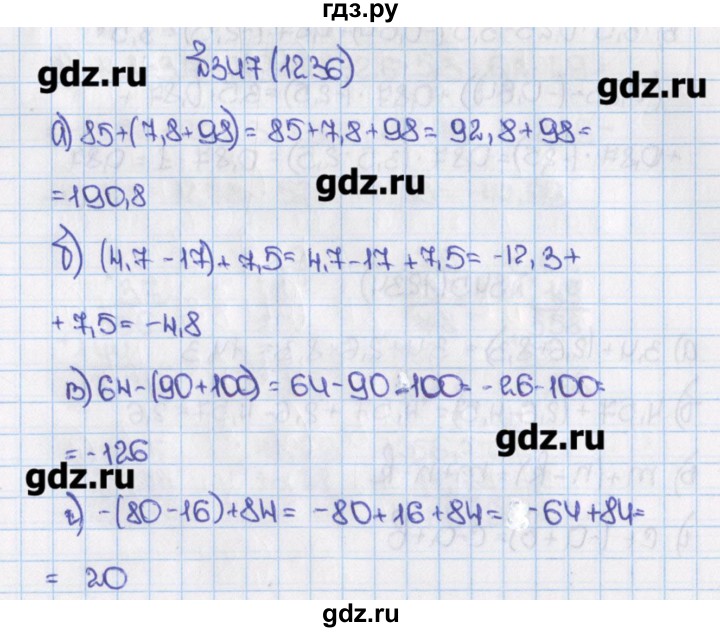 гдз.ру
№347 (1236)
gdz.ru
gdz.ru
а) 85+(7,8+98)= 85+7,8+98= 92,8+98=
=190,8
gdz.ru
б) (4,7-17)+7,5= 4,7-17+7,5= -12,3+
+7,5= -4,8
в) 64-(90+100)= 64-90-100= -26-100=
=-126
gdz.ru
gdz.ru
г) -(80-16)+84= -80+16+84= -64+84=
= 20
gdz.ru